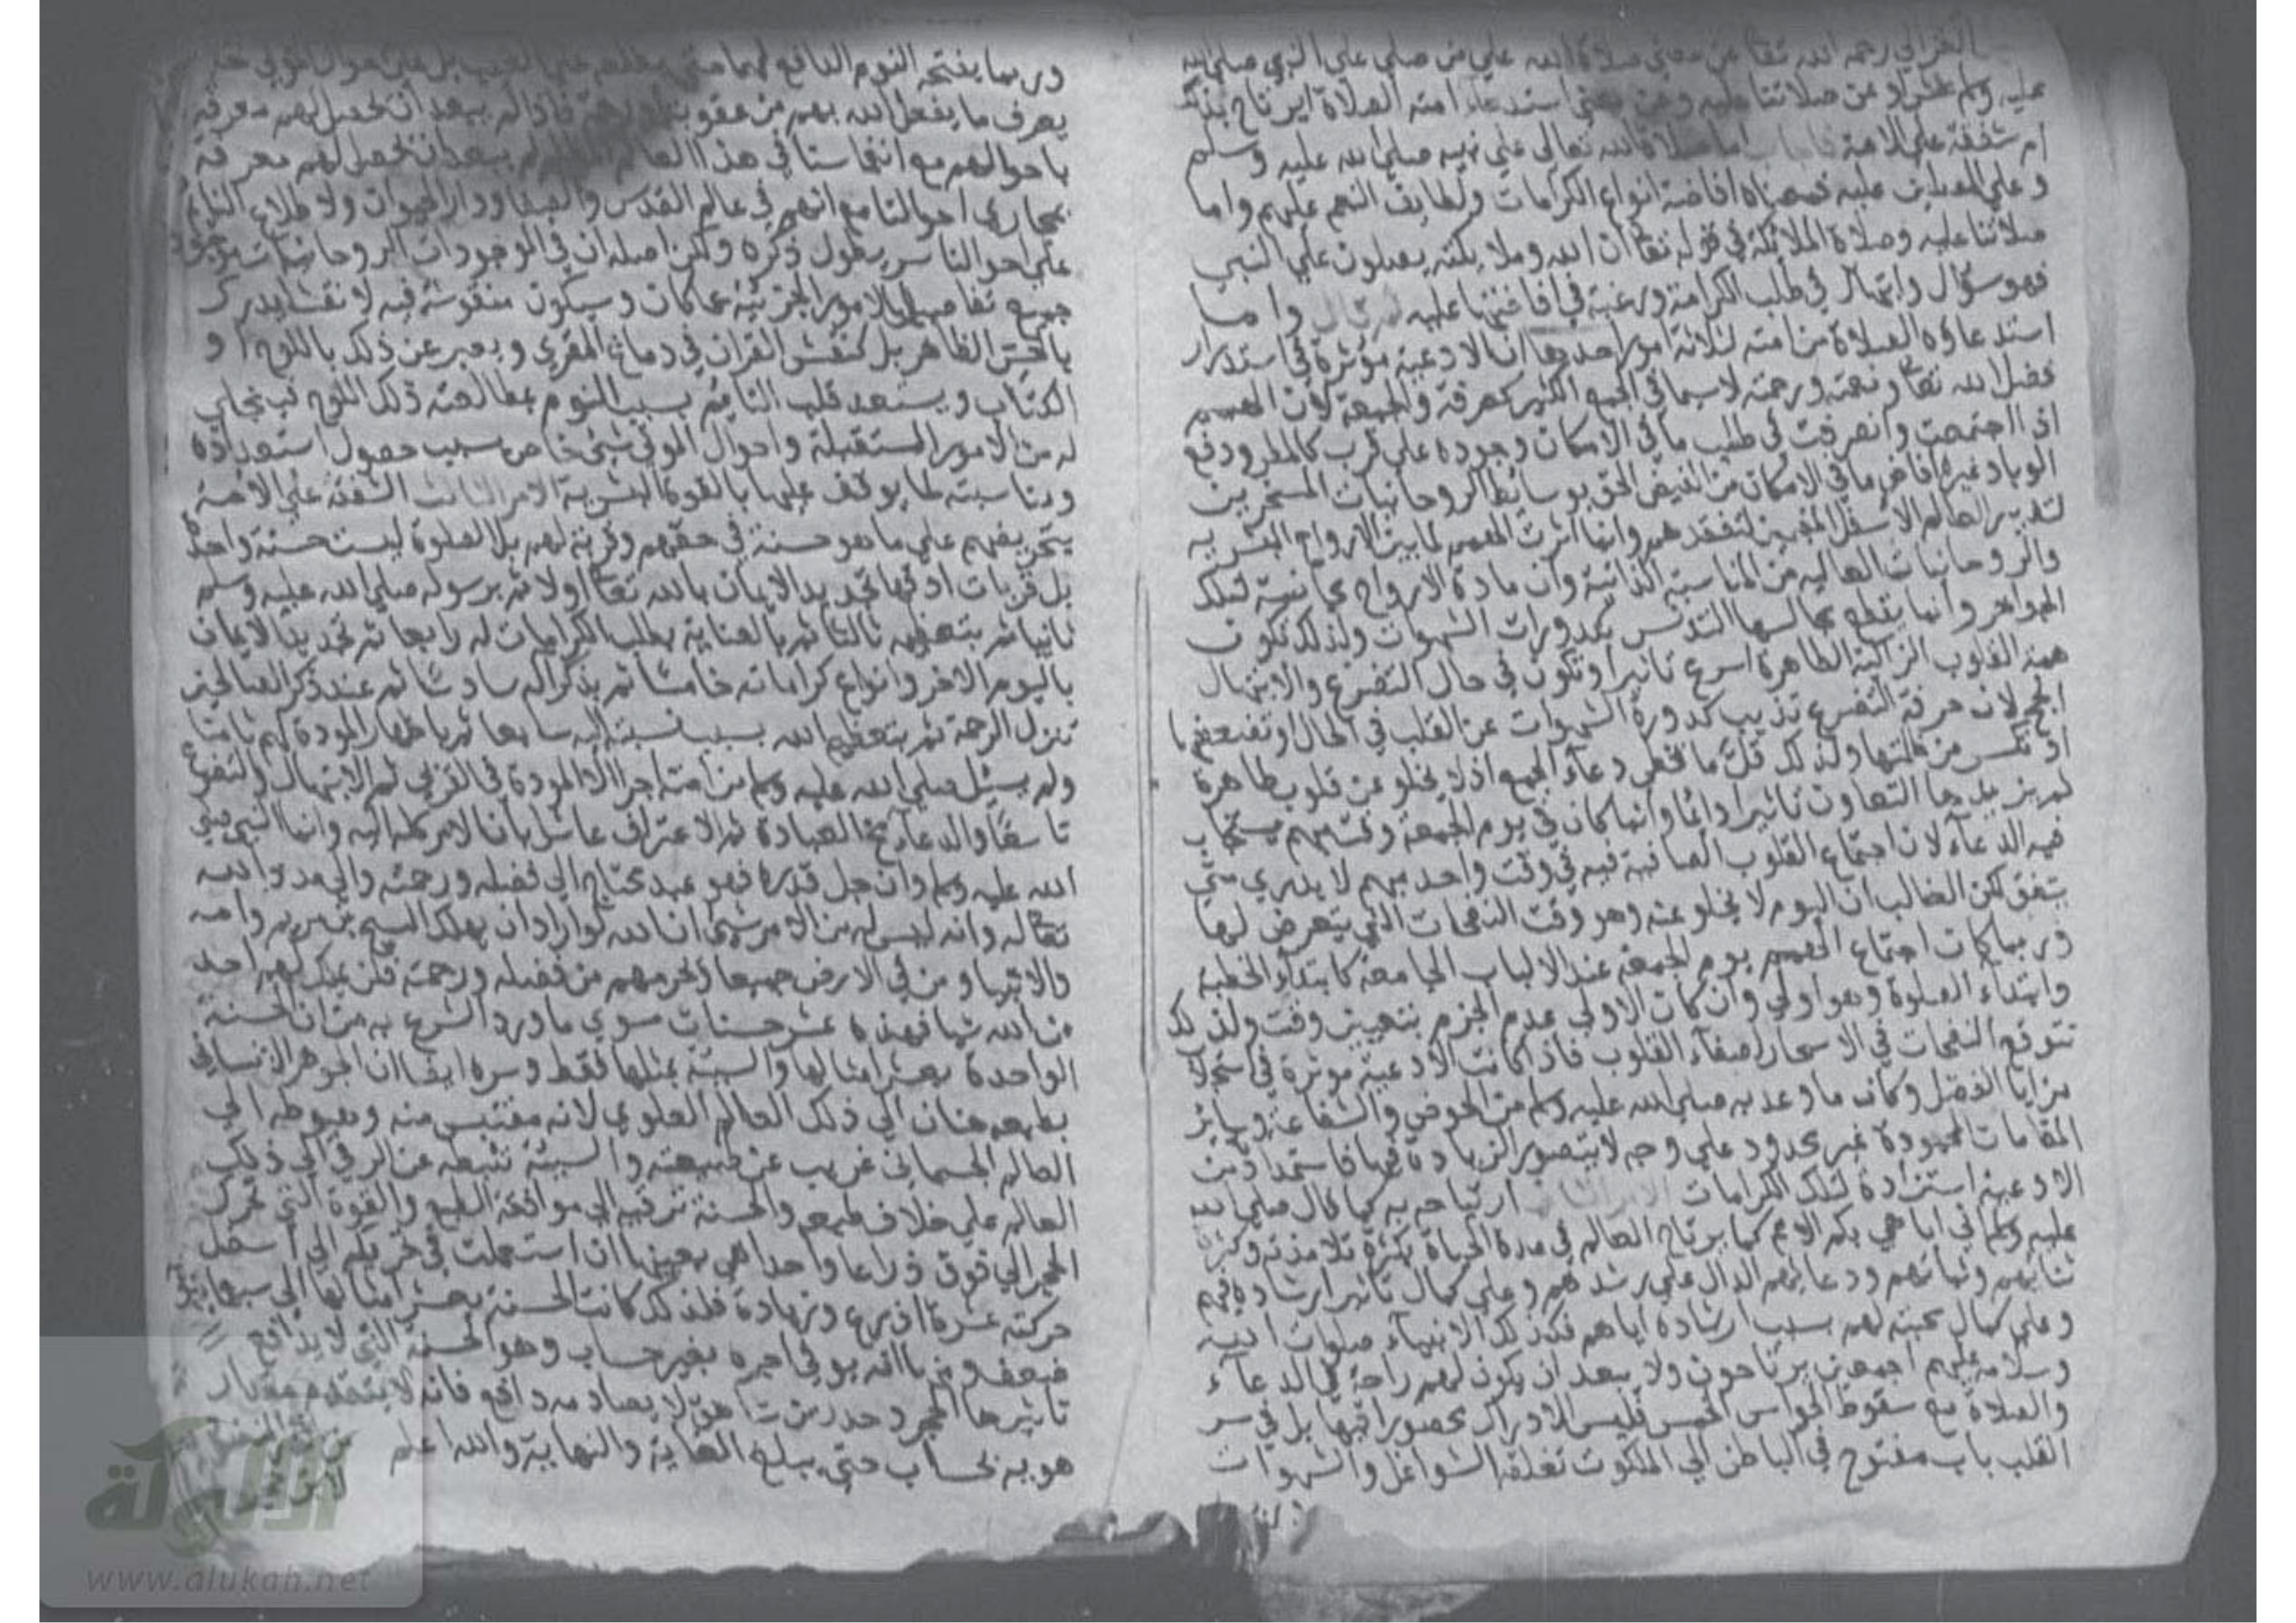 الغزالي رحمه الله تعا عن معني صلاة الله علي من صلي علي النبي صلي الله
عليه وسلم عشرا وعن صلاتنا عليه وعن معني استدعاء امته الصلاة ايرتاح بذلك
ام شفقة علي الامة اما صلاة الله تعالى علي نبيه صلي الله عليه وسلم
وعلي المصلين عليه فمعناه افاضة انواع الكرامات ولطايف النعم عليهم واما
صلاتنا عليه وصلاة الملائكة في قوله تعا ان الله وملايكته يصلون علي النبي
فهو سؤال وابتهال في طلب الكرامة ورغبة في افاضتها عليه واما
استدعاؤه الصلاة من امته لثلاثة امور احدها ان الادعية مؤثرة في استدرار
فضل الله تعا ونعمته ورحمته لاسيما في الجمع الكثير كعرفة والجمعة لان الهمم
اذا اجتمعت وانصرفت في طلب ما في الامكان وجوده علي قرب كالمطر ودفع
الوبا وغيره افاض ما في الامكان من الفيض الحق بوسائط الروحانيات المسخرين
لتدبير العالم الاسفل وانما اثرت الهمم لما بين الارواح البشرية
والروحانيات العالية من المناسبة الذاتية وان مادة الارواح مجانسة لتلك
الجواهر وانما يقطع مجانستها التدنس بكدورات الشهوات ولذلك تكون
همة القلوب الزاكية الطاهرة اسرع تاثيرا وتكون في حال التضرع والابتهال
انجح لان حرقة التضرع تذيب كدورة الشهوات عن القلب في الحال وتضعفها
او تكسر من ظلمتها ولذلك قل ما يخطي دعاء الجمع اذ لا يخلو عن قلوب طاهرة
لم يزيدها التعاون تاثيرا دائما وانما كان في يوم الجمعة وقت مبهم يستجاب
فيه الدعاء لان اجتماع القلوب الصافية فيه في وقت واحد مبهم لا يدري متي
يتفق لكن الغالب ان اليوم لا يخلو عنه وهو وقت النفحات التي يتعرض لها
وربما كان اجتماع الهمم يوم الجمعة عند الاسباب الجامعة كابتداء الخطبة
وابتداء الصلوة وهو اولي وان كان الاولي عدم الجزم بتعيين وقت ولذلك
تتوقع النفحات في الاسحار لصفاء القلوب فاذا كانت الادعية موثرة في استجلاب
مزايا الفضل وكان ما وعد به صلي الله عليه وسلم من الحوض والشفاعة وسائر
المقامات المحمودة غير محدود علي وجه لا يتصور الزيادة فيها فاستمداده من
الادعية استزادة لتلك الكرامات الامر الثاني ارتياحه به كما قال صلي الله
عليه وسلم اني اباهي بكم الامم كما يرتاح العالم في مدة الحياة بكثرة تلامذته وكثرة
ثنائهم ودعائهم الدال علي رشدهم وعلي كمال تاثير ارشاده فيهم
وعلي كمال محبته لهم بسبب ارشاده اياهم فكذلك الانبياء صلوات الله
وسلامه عليهم اجمعين يرتاحون ولا يبعد ان يكون لهم راحة في الدعاء
والصلاة مع سقوط الحواس الخمس فليس الادراك محصورا فيها بل في سر
القلب باب مفتوح في الباطن الي الملكوت تغلقه الشواغل والشهوات
وربما يفتحه النوم النافع
يعرف ما يفعل الله بهم من عقوبة ورحمة فاذا لم يبعد ان تحصل لهم معرفة
باحوالهم مع انغماسنا في هذا العالم لم يبعد ان تحصل لهم معرفة
بمجاري احوالنا مع انهم في عالم القدس والصفا ودار الحيوان ولاطلاع النائم
علي احوالنا سر يطول ذكره ولكن اصله ان في الوجودات الروحانيات
جميع تفاصيل الامور الجزئية مما كان وسيكون منقوشة فيه لا نقشا يدرك
بالحس الظاهر بل كنقش القران في دماغ المقري ويعبر عن ذلك باللوح او
الكتاب ويستعد قلب النائم بسبب النوم بمطالعة ذلك اللوح فينجلي
له من الامور المستقبلة واحوال الموتي شيئ خاص بسبب حصول استعداده
ومناسبته لما يوقف عليها بالقوة البشرية الامر الثالث الشفقة علي الامة
بتحريضهم علي ما هو حسنة في حقهم وقربة لهم بل الصلوة ليست حسنة واحدة
بل قربات اذ فيها تجديد الايمان بالله تعا اولا ثم برسوله صلي الله عليه وسلم
ثانيا ثم بتعظيمه ثالثا ثم بالعناية بطلب الكرامات له رابعا ثم تجديد الايمان
باليوم الاخر وانواع كراماته خامسا ثم بذكر اله سادسا ثم عند ذكر الصالحين
تنزل الرحمة ثم بتعظيم الله بسبب نسبته اليه سابعا ثم باظهار المودة لهم ثامنا
ولم يسئل صلي الله عليه وسلم من امته اجرا الا المودة في القربي ثم الابتهال والتضرع
تاسعا والدعاء مخ العبادة ثم الاعتراف عاشرا بان الامر كله اليه وان النبي صلي
الله عليه وسلم وان جل قدره فهو عبد محتاج الي فضله ورحمته
تعاله وانه ليس له من الامر شيئ ان الله لو اراد ان يهلك المسيح بن مريم وامه
والانبيا ومن في الارض جميعا ويحرمهم من فضله ورحمته فلن يملك لهم احد
من الله شيا فهذه عشر حسنات سوي ما ورد الشرع به من ان الحسنة
الواحدة بعشر امثالها والسيئة بمثلها فقط وسره ايضا ان الجوهر الانساني
بطبعه حنان الي ذلك العالم العلوي لانه مقتبس منه وهبوطه الي
العالم الجسماني غريب عن طبيعته والسيئة تثبطه عن الرقي الي ذلك
العالم علي خلاف طبعه والحسنة ترقيه الي موافقة الطبع والقوة التي تحرك
الحجر الي فوق ذراعا واحدا هي بعينها ان استعملت في تحريكه الي اسفل
حركته عشرة اذرع وزيادة فلذلك كانت الحسنة بعشر امثالها الي سبعماية
ضعف وغيرها انه يوفي اجره بغير حساب وهو الحسنة التي لا يدافع
تاثيرها الحجر وحدر من شاهق لا يصادمه دافع فانه لا يتقدم مقدار
هويه بحساب حتي يبلغ الغاية والنهاية والله اعلم
www.alukah.net
الألوكة